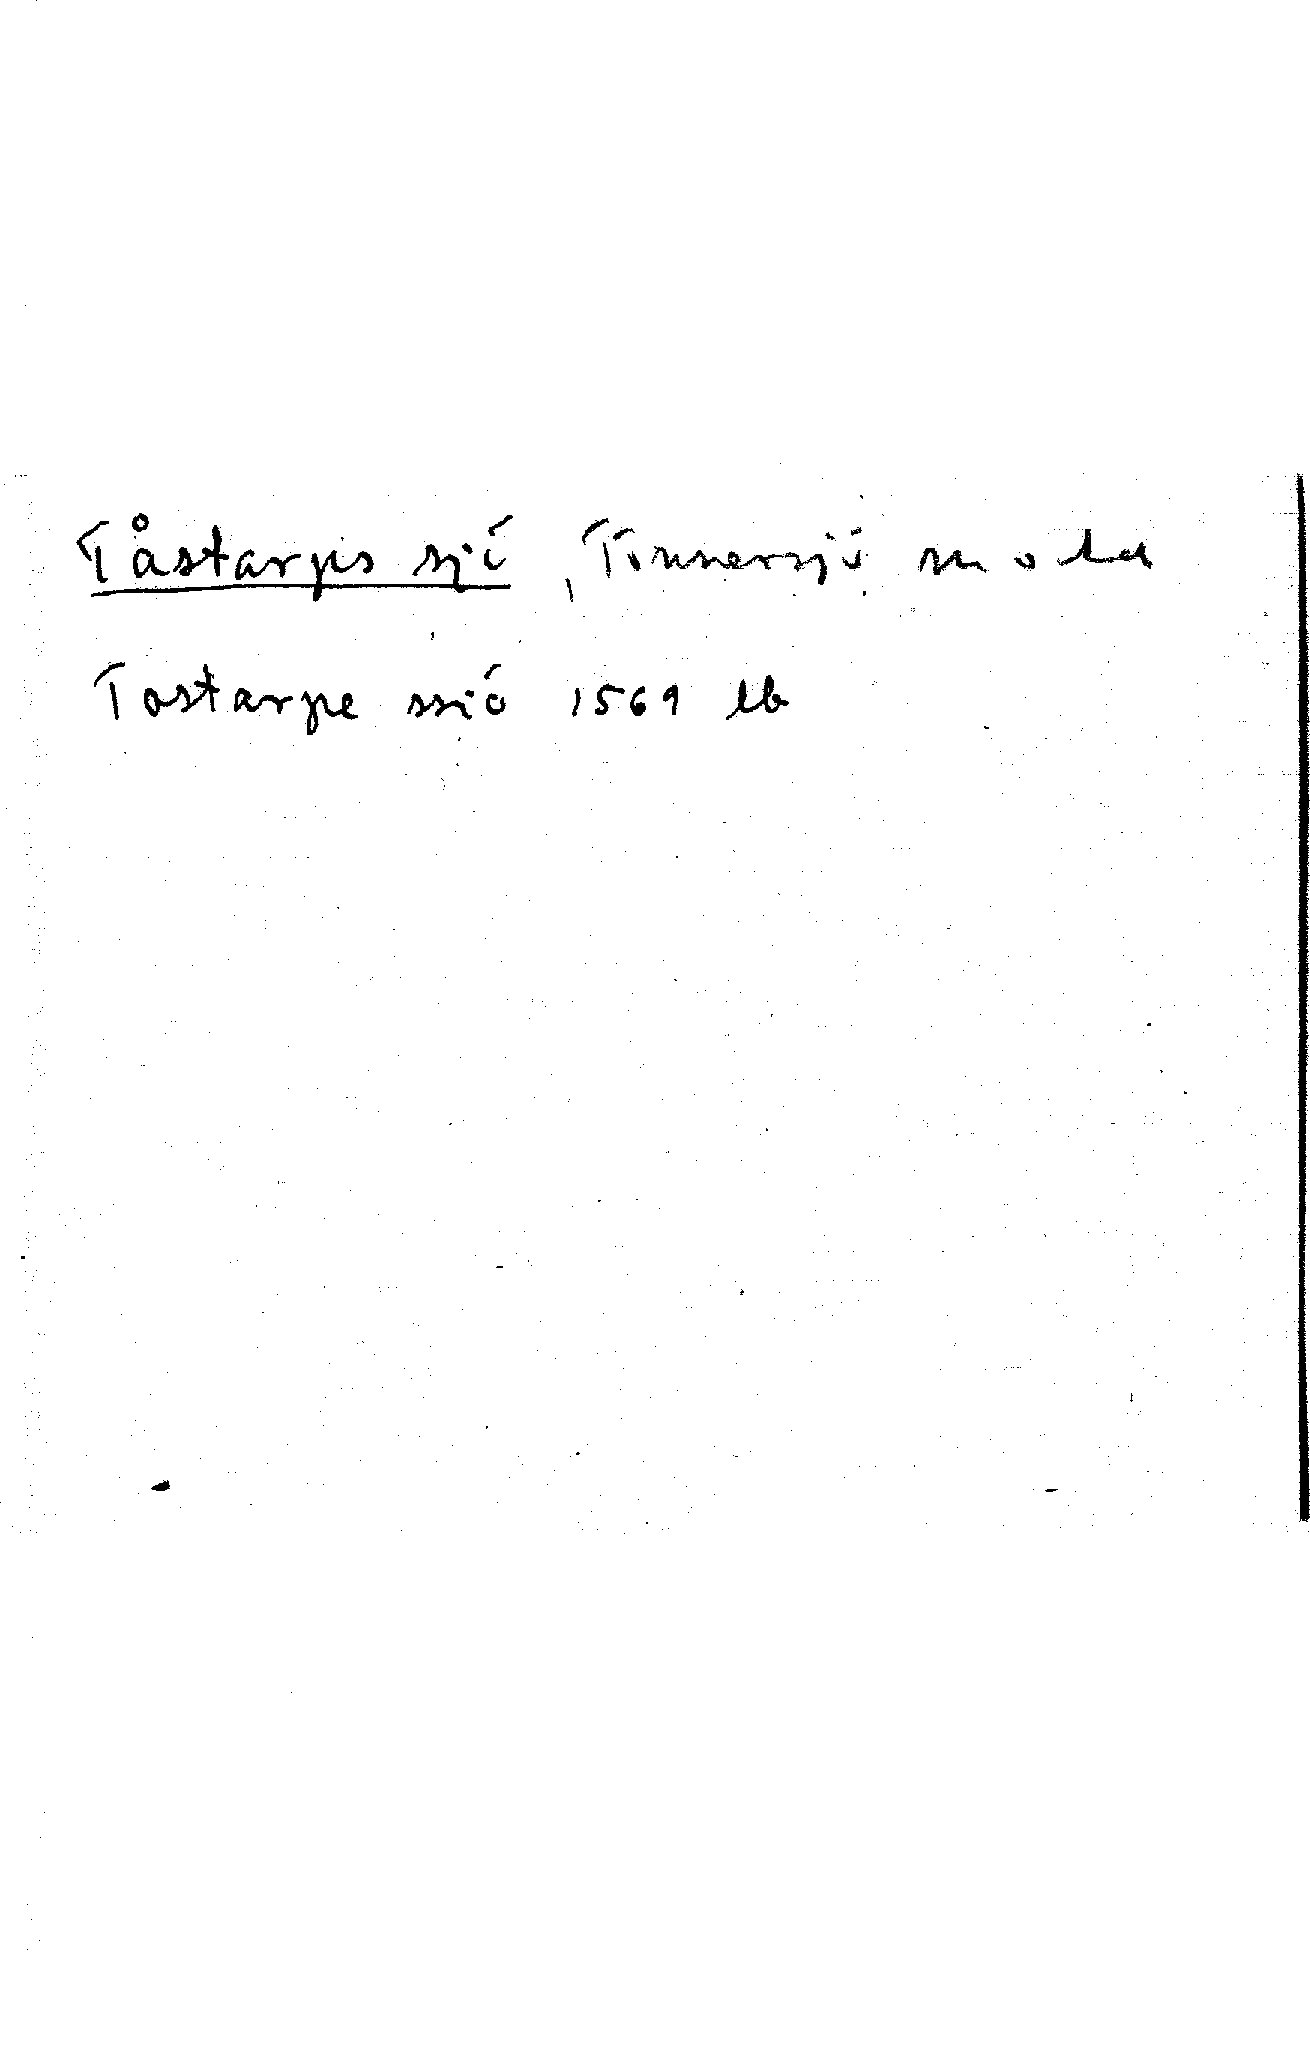 Tåstarps sjö, Tönnersjö sn o hd
Tostarpe ssiö 1569 lb